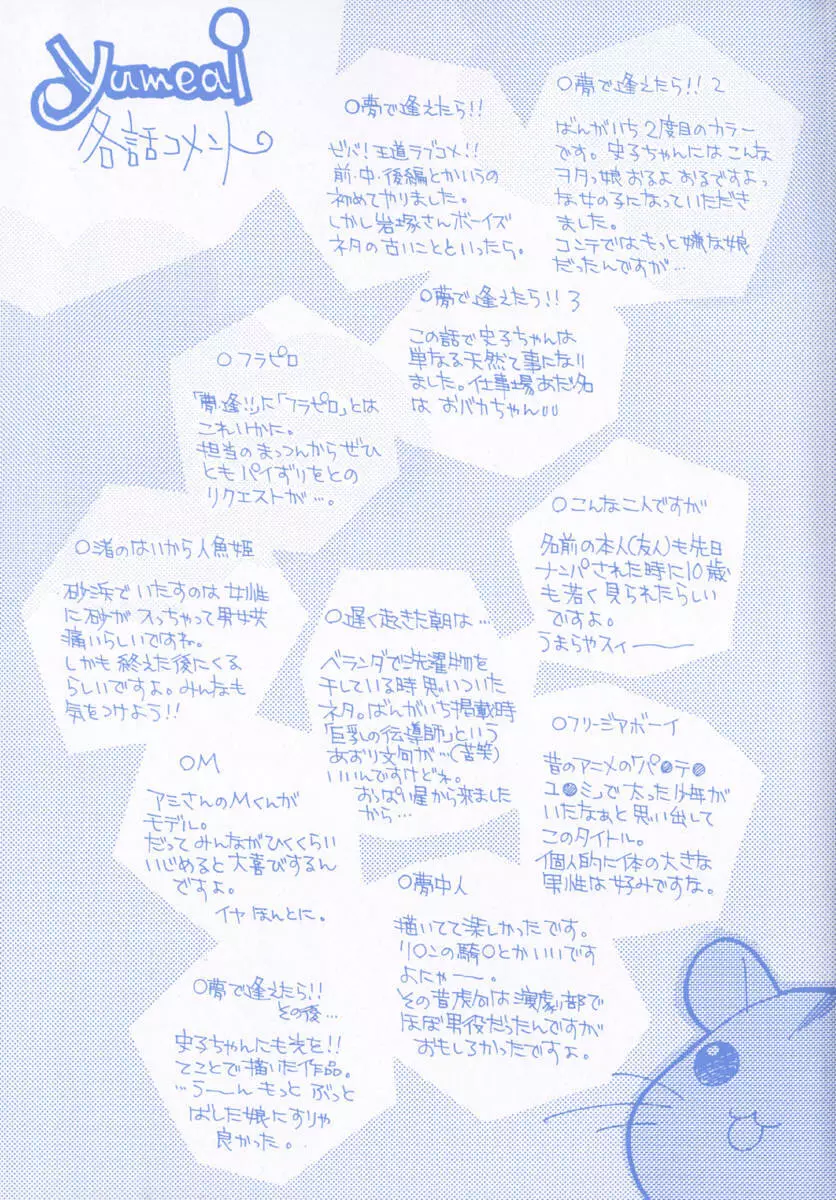 yumeai
各話コメント
○夢で逢えたら!!
ゼバ!王道ラブコメ!!
前・中・後編とかいうの
初めてやりました。
しかし岩塚さんボーイズ
ネタの古いことといったら。
○夢で逢えたら!! 2
ばんがいち2度目のカラー
です。史子ちゃんにはこんな
ヲタっ娘おるよおるですよっ
な女の子になっていただき
ました。
コンテではもっと嫌な娘
だったんですが…
○夢で逢えたら!! 3
この話で史子ちゃんは
単なる天然て事になり
ました。仕事場あだ名
は おバカちゃん
○フラピロ
「夢・逢!!」に「フラピロ」とは
これいかに。
担当のまっつんからぜひ
ともパイずりをとの
リクエストが…。
○こんな二人ですが
名前の本人(友人)も先日
ナンパされた時に10歳
も若く見られたらしい
ですよ。
うまらやスィー
○渚のはいから人魚姫
砂浜でいたすのは女性
に砂が入っちゃって男女共
痛いらしいですね。
しかも終えた後にくる
らしいですよ。みんなも
気をつけよう!!
○遅く起きた朝は…
ベランダで洗濯物を
干している時思いついた
ネタ。ばんがいち掲載時
「巨乳の伝導師」という
あおり文句が…(苦笑)
いいんですけどね。
おっぱい星から来ました
から…
○フリージアボーイ
昔のアニメの「パ●テ●
ユ●ミ」で太った少年が
いたなぁと思い出して
このタイトル。
個人的に体の大きな
男性は好みですな。
○M
アミさんのMくんが
モデル。
だってみんながひくくらい
いじめると大喜びするん
ですよ。
イヤ ほんとに。
○夢中人
描いてて楽しかったです。
リ○ンの騎○とかいいです
よにゃー。
その昔虎向は演劇部で
ほぼ男役だったんですが
おもしろかったですよ。
○夢で逢えたら!!
その後…
史子ちゃんにも光を!!
てことで描いた作品。
…うーん もっと ぶっと
ばした娘にすりゃ
良かった。